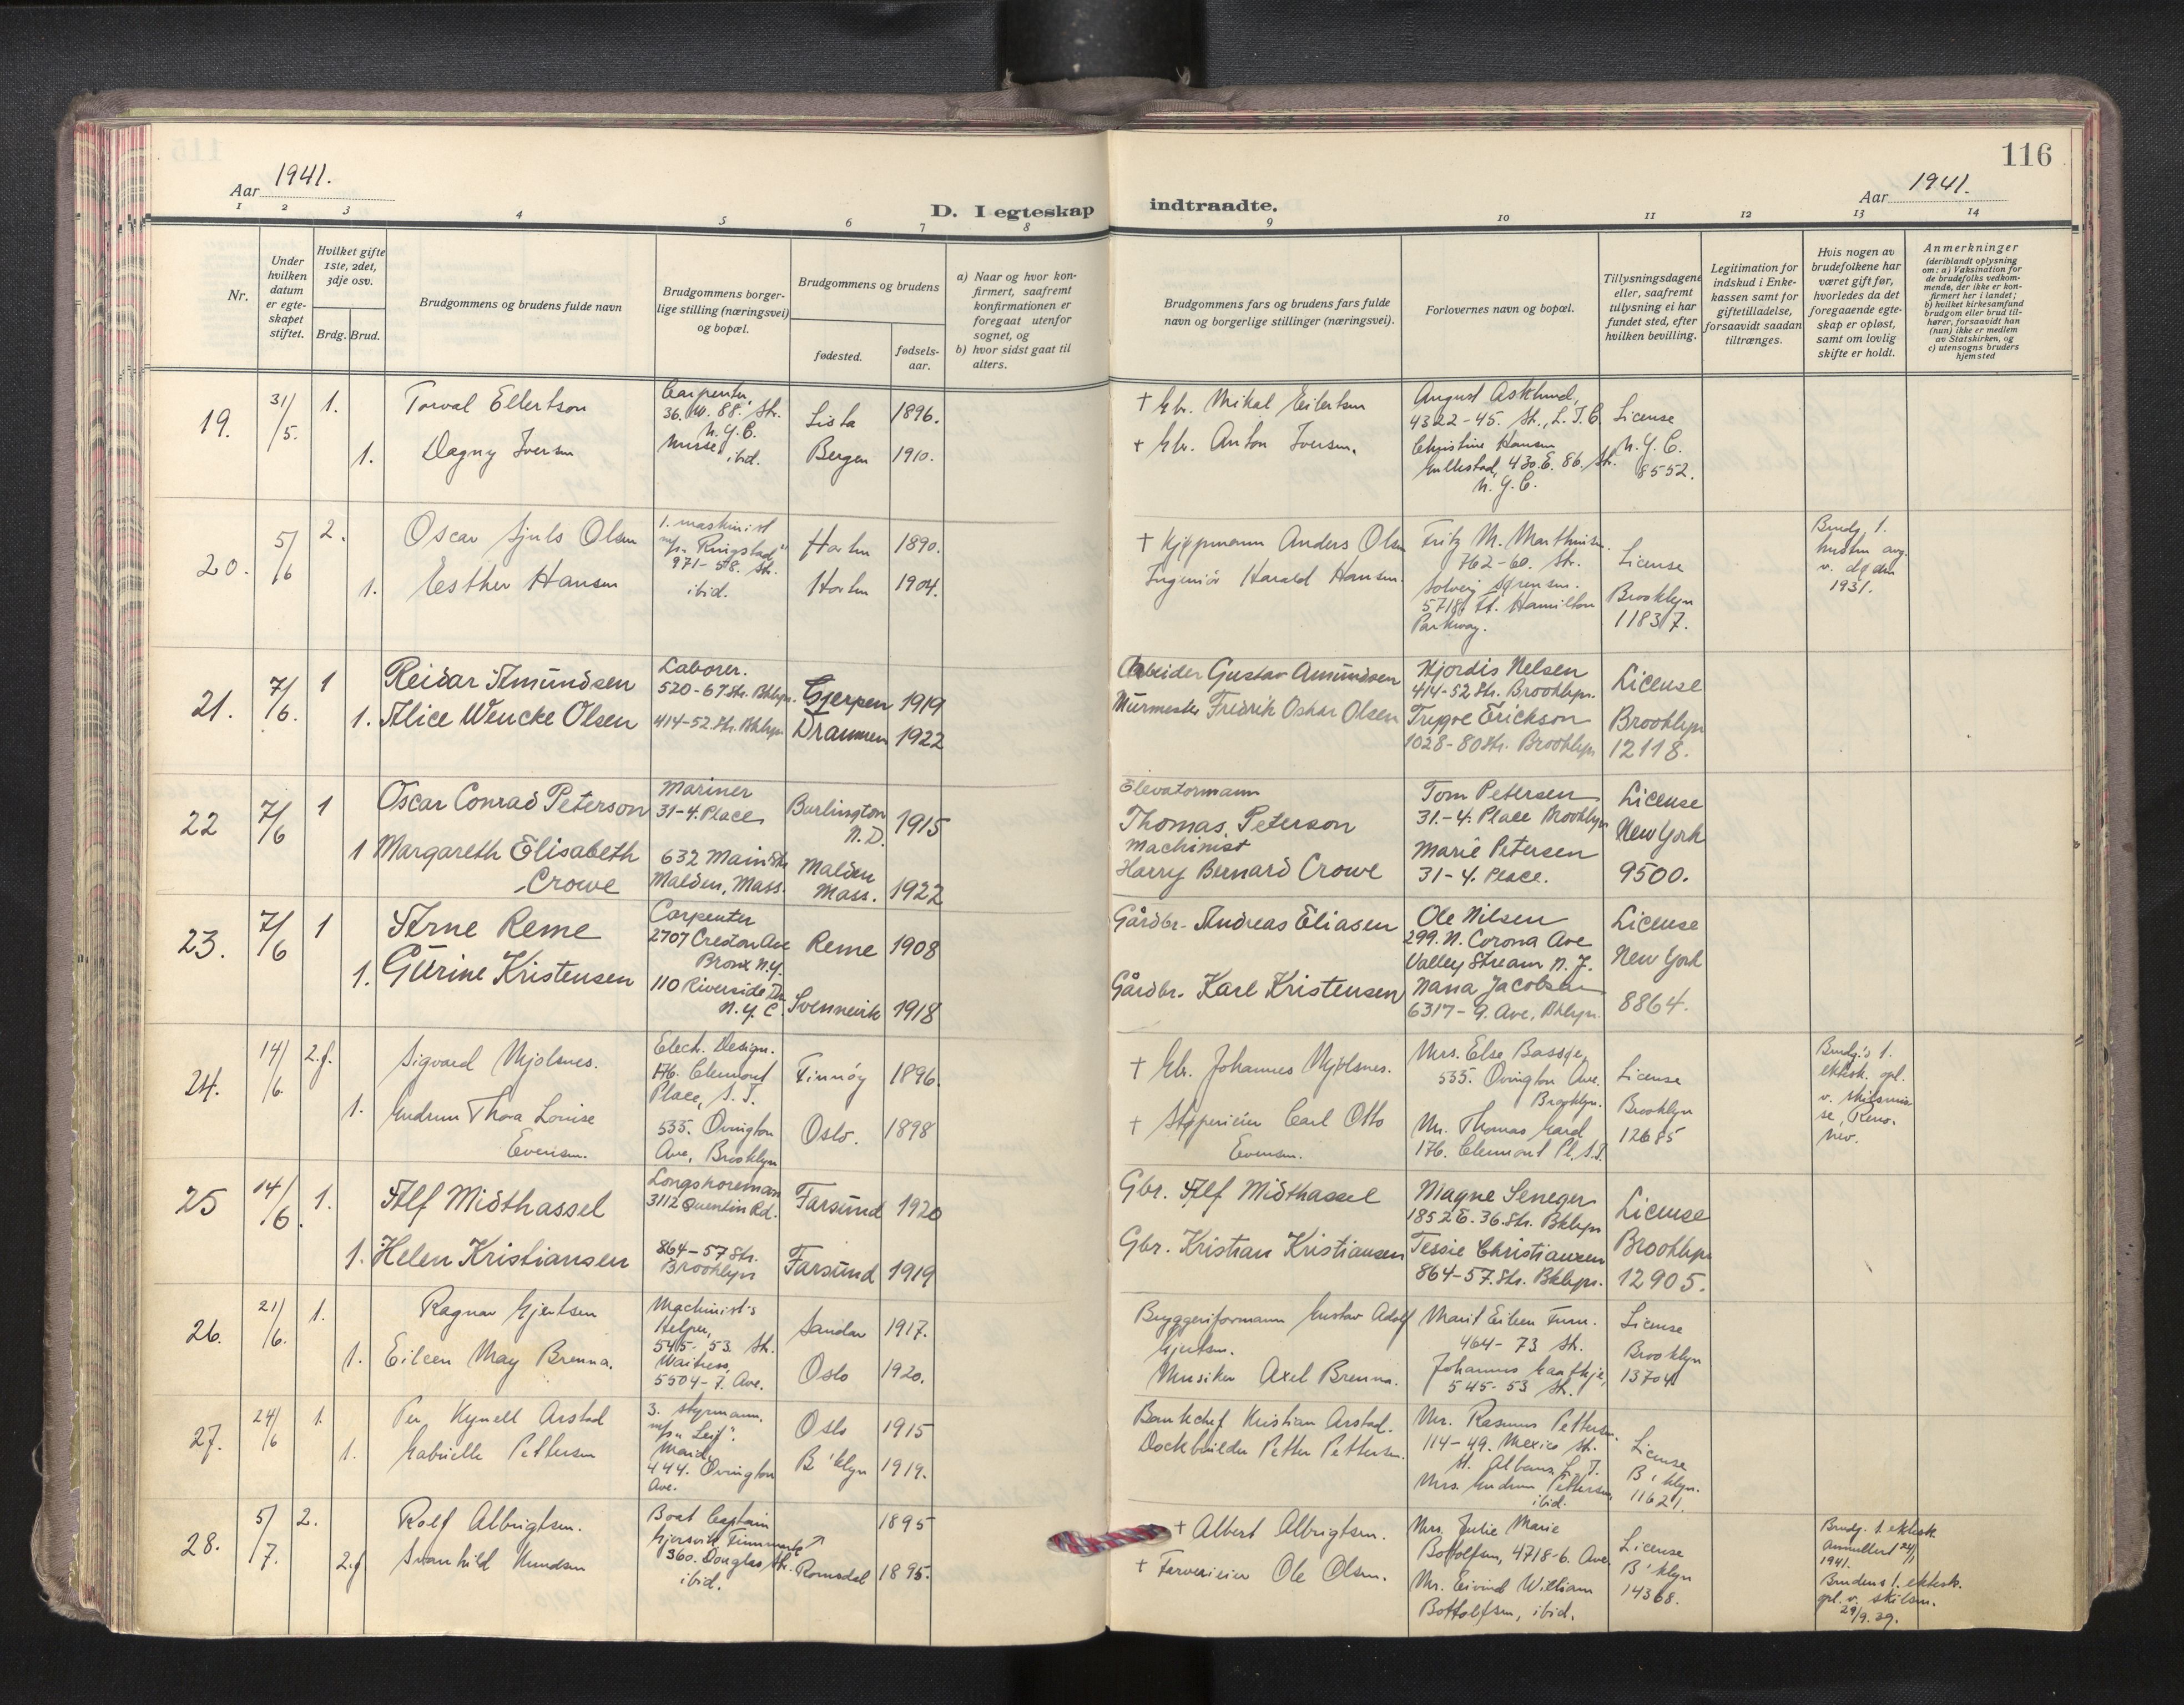 116
Aar 1941.
D. I egteskap indtraadte.
Aar 1941.
1 2 3 4 5 6 7 8 9 10 11 12 13 14
Nr.
Under hvilken datum er egteskapet stiftet.
Hvilket gifte 1ste, 2det, 3dje osv.
Brdg. Brud.
Brudgommens og brudens fulde navn
Brudgommens borgerlige stilling (næringsvei) og bopæl.
Brudgommens og brudens
fødested.
fødselsaar.
a) Naar og hvor konfirmert, saafremt konfirmationen er foregaat utenfor sognet, og
b) hvor sidst gaat til alters.
Brudgommens fars og brudens fars fulde navn og borgerlige stillinger (næringsvei).
Forlovernes navn og bopæl.
Tillysningsdagene eller, saafremt tillysning ei har fundet sted, efter hvilken bevilling.
Legitimation for indskud i Enkekassen samt for giftetilladelse, forsaavidt saadan tiltrænges.
Hvis nogen av brudefolkene har været gift før, hvorledes da det foregaaende egteskap er opløst, samt om lovlig skifte er holdt.
Anmerkninger
(deriblandt oplysning om: a) Vaksination for de brudefolks vedkommende, der ikke er konfirmert her i landet;
b) hvilket kirkesamfund brudgom eller brud tilhører, forsaavidt han (hun) ikke er medlem av Statskirken, og
c) utensogns bruders hjemsted
19. 31/5. 1.
Torval Ellertson
Carpenter,
36. W. 88. Str.
N.Y.C.
Lista 1896.
1. Dagny Iversen
Nurse, ibid.
Bergen 1910.
† Gbr. Mikal Eilertsen
† Gbr. Anton Iversen.
August Asklund,
4322-45. St., L.I.C.
Christine Hansen
Gullestad, 430.E. 86. Str.
N.Y.C.
License
N.Y.C.
8552.
20. 5/6 2.
Oscar Sjuls Olsen
1. maskinist
m/s "Ringstad"
971-58. St.
Horten 1890.
1. Esther Hansen
ibid.
Horten 1904.
† Kjøpmann Anders Olsen
Ingeniør Harald Hansen.
Fritz M. Marthinsen.
762-60. Str.
Solveig Sørensen.
5718 Ft. Hamilton
Parkway.
License
Brooklyn
11837.
Brudg. 1.
hustru avg.
v. døden
1931.
21. 7/6. 1
Reidar Amundsen
Laborer.
520-67 Str. Bklyn.
Gjerpen 1919
1. Alice Wencke Olsen
414-52. Str. Bklyn
Drammen 1922
Arbeider Gustav Amundsen
Murmester Fredrik Oskar Olsen
Hjördis Nelsen
414-52 Str. Brooklyn.
Trygve Erickson
1028-80 Str. Brooklyn
License
Brooklyn
12118.
22 7/6 1
Oscar Conrad Peterson
Mariner
31-4. Place
Burlington
N.D.
1915
1 Margareth Elisabeth
Crowe
632 Main Str.
Malden, Mass.
Malden
Mass. 1922
Elevatormann
Thomas Peterson
Machinist
Harry Bernard Crowe
Tom Petersen
31.-4. Place Brooklyn
Marie Petersen
31-4. Place.
License
New York
9500.
23. 7/6 1
Arne Reme
Carpenter
2707 Creston Ave
Bronx N.Y.
Reme 1908
1. Gurine Kristensen
110 Riverside Dr.
N.Y.C.
Svennevik 1918
Gårdbr. Andreas Eliasen
Gårdbr. Karl Kristensen
Ole Nilsen
299. N. Corona Ave
Valley Stream N.J.
Nana Jacobsen
6317-9. Ave, Bklyn.
License
New York
8864.
24. 14/6. 2.g.
Sigvard Mjølsnes.
Elect. Design.
176. Clermont
Place, S.I.
Finnøy 1896.
1. Gudrun Thora Louise
Evensen.
535. Ovington
Ave, Brooklyn
Oslo. 1898
† Gbr. Johannes Mjølsnes.
† Støperieier Carl Otto
Evensen.
Mrs. Else Bassøe,
535. Ovington Ave.
Brooklyn.
Mr. Thomas Gard
176. Clermont Pl. S.I.
License
Brooklyn
12685
Brudg.'s 1.
ektesk. opl.
v. skilsmis
se, Reno.
Nev.
25 14/6. 1.
Alf Midthassel
Longshoreman
3112 Quentin Rd.
Farsund 1920
1. Helen Kristiansen
864-57 Str.
Brooklyn
Farsund 1919
Gbr. Alf Midthassel
Gbr. Kristian Kristiansen
Magne Seneger
1852 E. 36. Str. Bklyn
Tessie Christiansen
864-57. Str. Bklyn.
License
Brooklyn
12905.
26. 21/6. 1.
Ragnar Gjertsen
Machinist's
Helper,
545-53. St.
Sandar 1917.
1. Eileen May Brenna.
Waitress,
5504-7. Ave.
Oslo 1920.
Bryggeriformann Gustav Adolf
Gjertsen.
Musiker Axel Brenna.
Marit Eileen
464-73 St.
Johannes
545-53 St.
License
Brooklyn
13704
27. 24/6 1.
Per Kynell Arstad
3. styrmann.
m/s "Leif".
Oslo 1915
1. Gabrielle Pettersen
Maid,
444. Ovington
Ave.
B'klyn 1919.
Bankchef Kristian Arstad.
Dockbuilder Petter Pettersen.
Mr. Rasmus Pettersen.
114-49. Mexico St.
St. Albans, L.I.
Mrs. Gudrun Pettersen,
ibid.
License
B'klyn.
11621.
28. 5/7. 2.
Rolf Albrigtsen.
Boat Captain
Gjesvik Finnmark
360. Douglas St.
1895
2.g Svanhild Knudsen
ibid.
Romsdal 1895.
† Albert Albrigtsen.
† Farverieier Ole Olsen.
Mrs. Julie Marie
Bottolfsen, 4718-6. Ave
Mr. Eivind William
Bottolfsen, ibid.
License
B'klyn
14368.
Brudg. 1. ektesk.
Annullert 24/1
1941.
Brudens 1. ektesk.
opl. v. skilsm.
29/9.29.